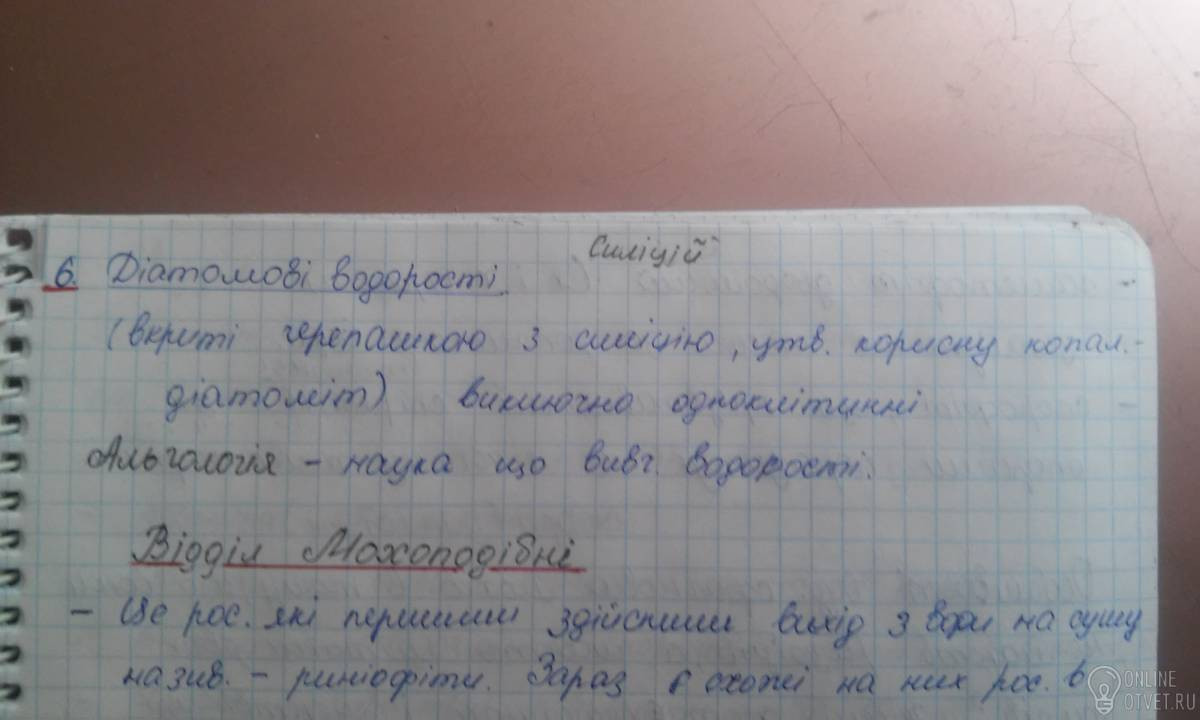 Силіцій
6. Діатомові водорості
(вкриті черепашкою з силіцію, утв. корисну копал.-
діатоміт) виключно одноклітинні
Альгологія - наука що вивч. водорості.
Відділ Мохоподібні
- Це рос. які першими здійснили вихід з води на сушу
назив. - риніофіти. Зараз є схожі на них рос. в
ONLINE
OTVET.RU